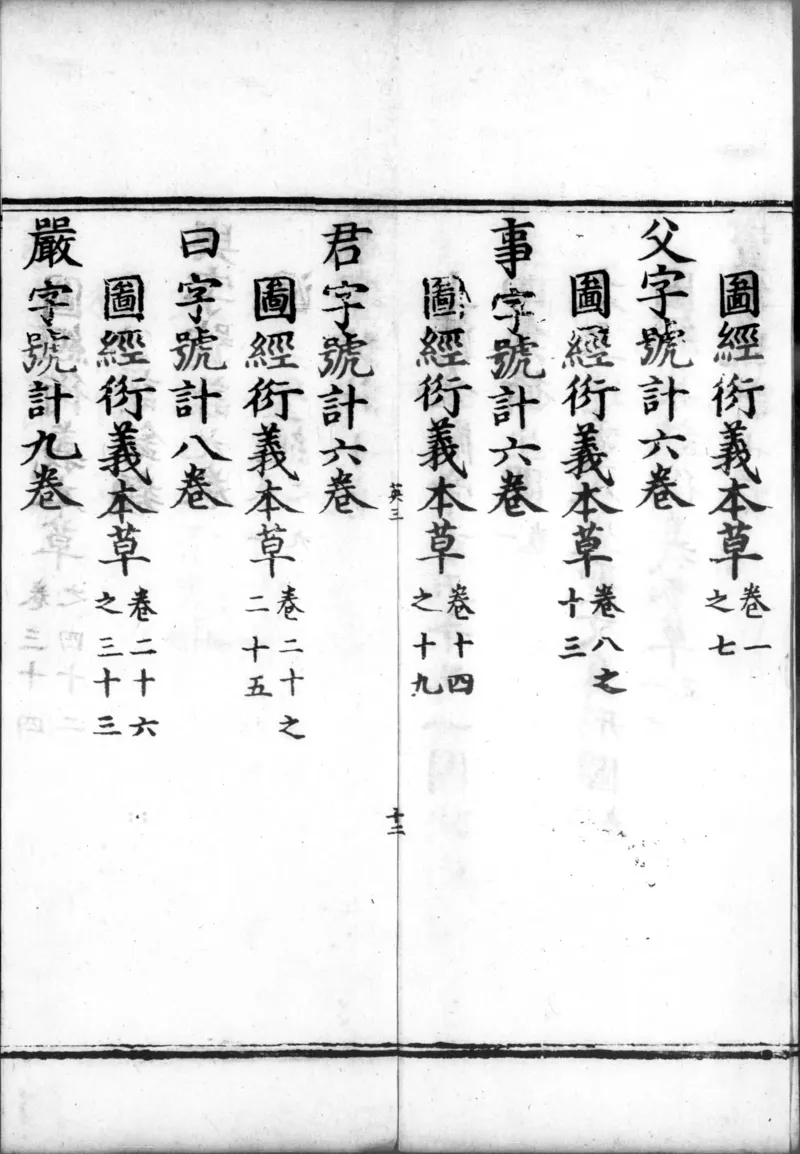 圖經衍義本草卷一之七
父字號計六卷
圖經衍義本草卷八之十三
事字號計六卷
圖經衍義本草卷十四之十九
英三
十二
君字號計六卷
圖經衍義本草卷二十之二十五
曰字號計八卷
圖經衍義本草卷二十六之三十三
嚴字號計九卷